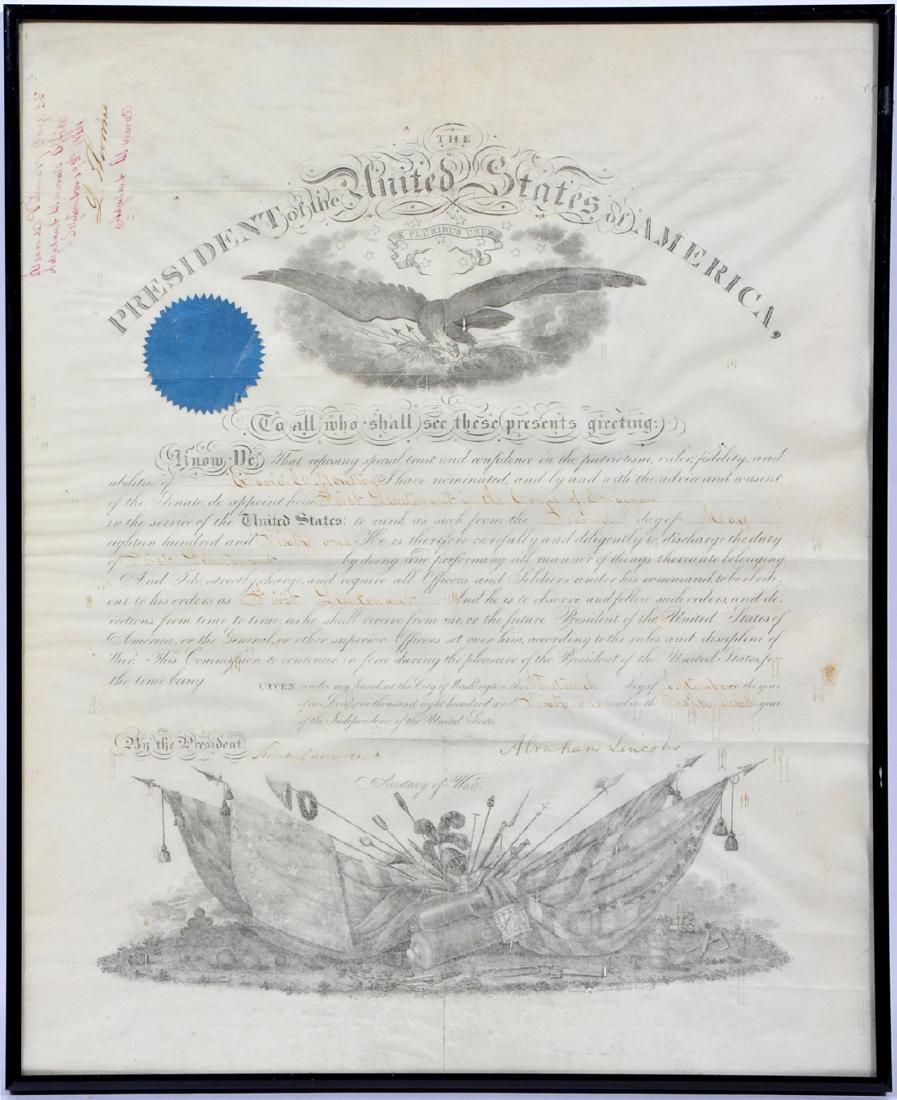 THE
PRESIDENT of the United States of AMERICA,
E PLURIBUS UNUM
To all who shall see these presents greeting:
Know Ye, That reposing special trust and confidence in the patriotism, valor, fidelity, and
abilities of David C. I have nominated, and by and with the advice and consent
of the Senate, do appoint him First Lieutenant in the Corps of Engineers
in the service of the United States: to rank as such from the Second day of May
eighteen hundred and Sixty one. He is therefore carefully and diligently to discharge the duty
of First Lieutenant by doing and performing all manner of things thereunto belonging.
And I do strictly charge, and require all Officers and Soldiers under his command, to be obedi-
ent to his orders as First Lieutenant. And he is to observe and follow such orders, and di-
rections, from time to time, as he shall receive from me, or the future President of the United States of
America, or the General, or other superior Officers set over him, according to the rules and discipline of
War. This Commission to continue in force during the pleasure of the President of the United States, for
the time being.
GIVEN under my hand, at the City of Washington, the day of September in the year
of our Lord, one thousand eight hundred and Sixty one and in the Eighty Sixth year
of the Independence of the United States.
By the President,
Abraham Lincoln
Simon Cameron
Secretary of War.
Adjutant General's Office
L. Thomas
Adjutant General